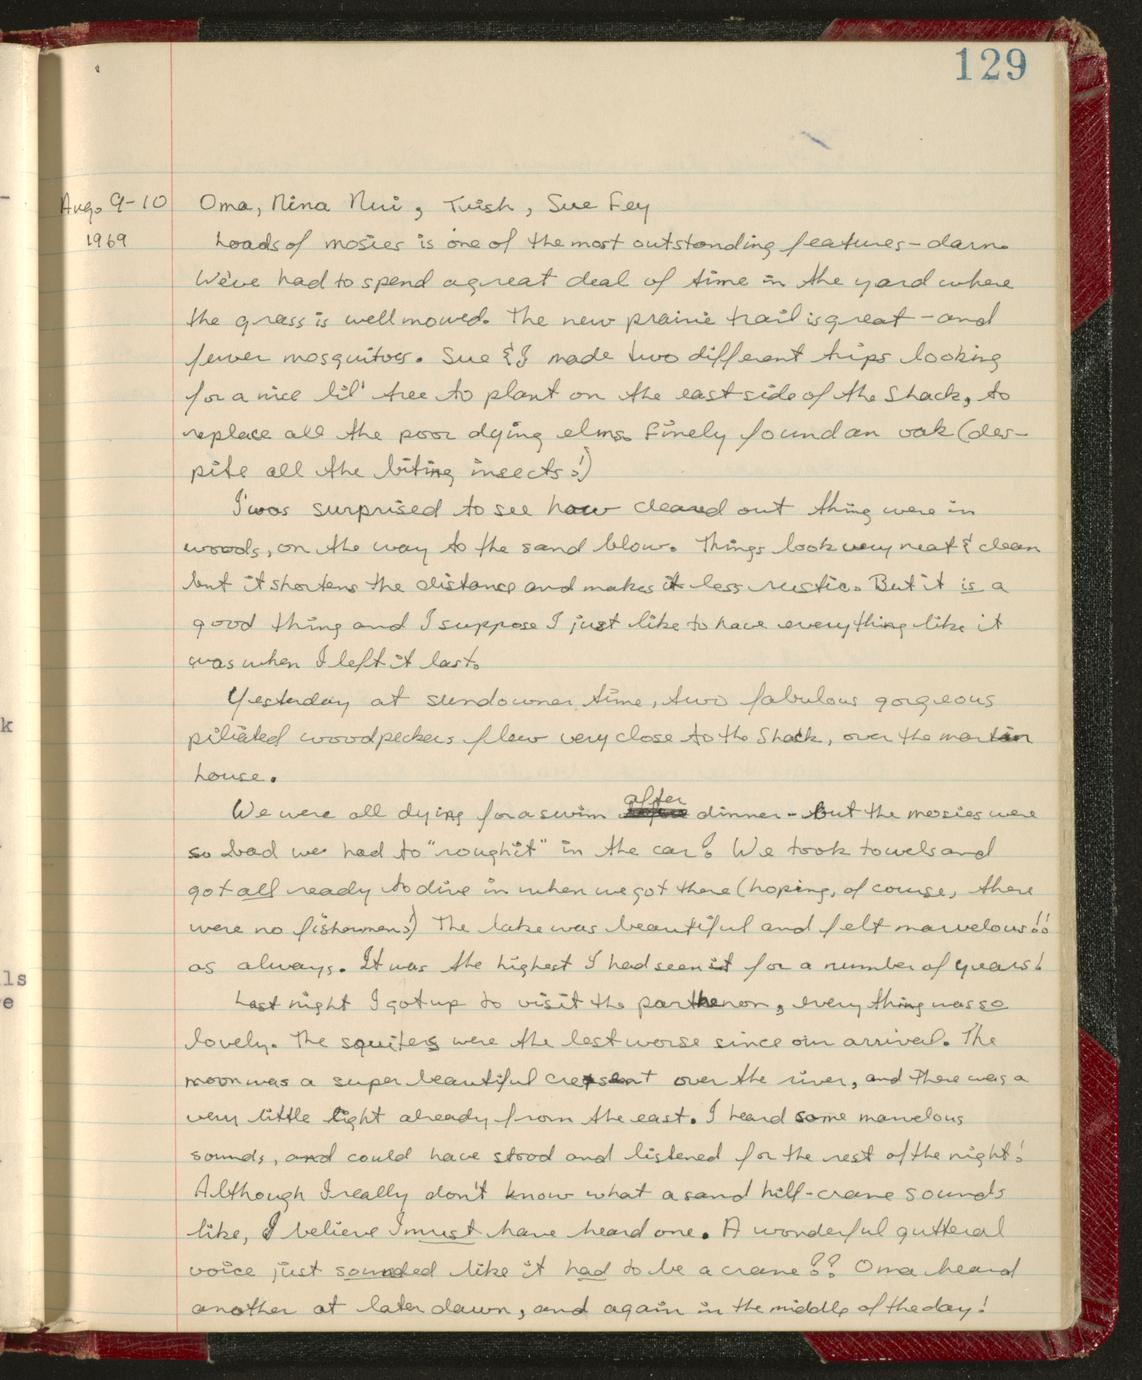 129
Aug. 9-10 Oma, Nina Nui, Trish, Sue Fey
1969 Loads of mosies is one of the most outstanding features - darn.
We've had to spend a great deal of time in the yard where
the grass is well mowed. The new prairie trail is great - and
fewer mosquitoes. Sue & I made two different trips looking
for a nice lil' tree to plant on the east side of the Shack, to
replace all the poor dying elms. Finely found an oak (des-
pite all the biting insects!)
I was surprised to see how cleared out thing were in
woods, on the way to the sand blow. Things look very neat & clean
but it shortens the distance and makes it less rustic. But it is a
good thing and I suppose I just like to have everything like it
was when I left it last.
Yesterday at sundowner time, two fabulous gorgeous
piliated woodpeckers flew very close to the Shack, over the martin
house.
We were all dying for a swim after dinner - but the mosies were
so bad we had to "rough it" in the car! We took towels and
got all ready to dive in when we got there (hoping, of course, there
were no fishermen!) The lake was beautiful and felt marvelous!!
as always. It was the highest I had seen it for a number of years!
Last night I got up to visit the parthenon, everything was so
lovely. The squiters were the lest worse since our arrival. The
moon was a super beautiful cressent over the river, and there was a
very little light already from the east. I heard some marvelous
sounds, and could have stood and listened for the rest of the night!
Although I really don't know what a sand hill-crane sounds
like, I believe I must have heard one. A wonderful gutteral
voice just sounded like it had to be a crane?? Oma heard
another at later dawn, and again in the middle of the day!
k
ls
e